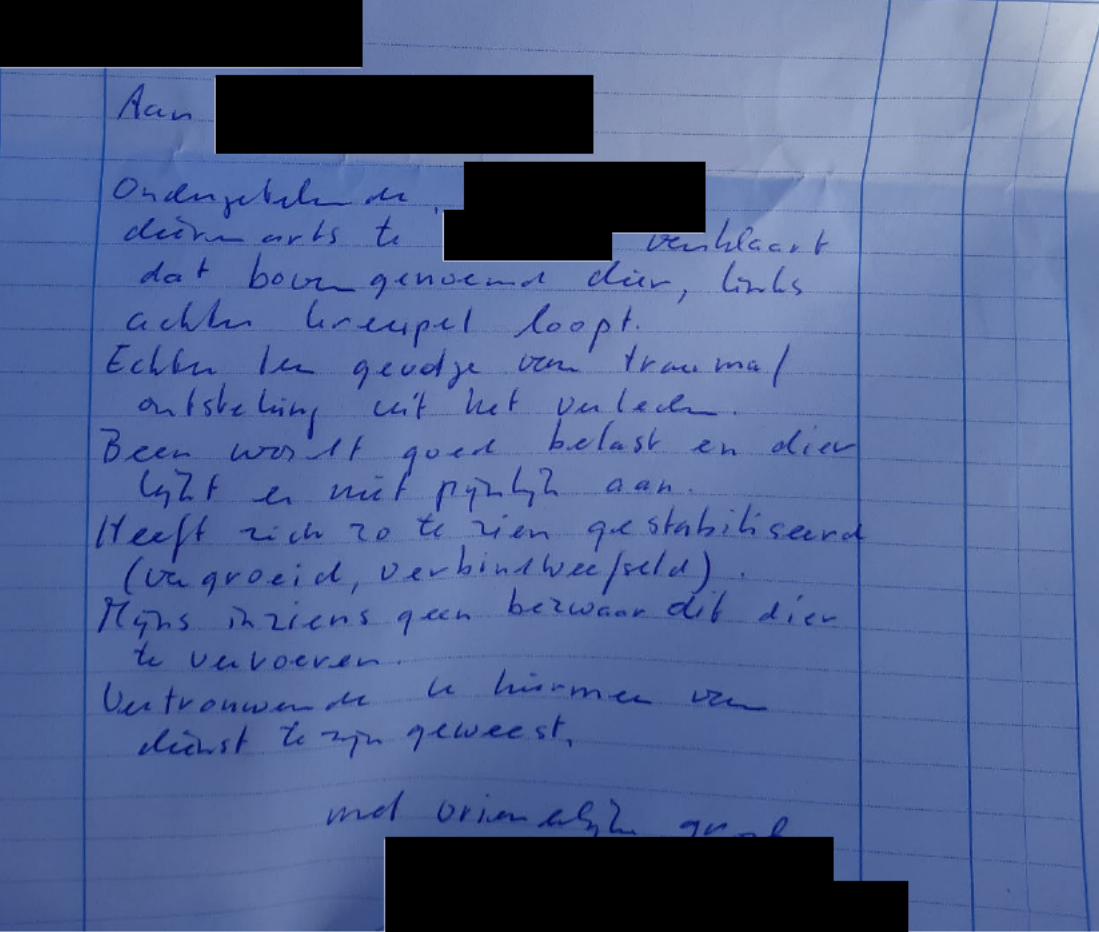 Aan
Ondergetekende,
dierenarts te verklaart
dat bovengenoemd dier, links
achter kreupel loopt.
Echter ten gevolge van trauma/
ontsteking uit het verleden.
Been wordt goed belast en dier
lijkt er niet pijnlijk aan.
Heeft zich zo te zien gestabiliseerd
(vergroeid, verbindweefseld).
Mijns inziens geen bezwaar dit dier
te vervoeren.
Vertrouwende u hiermee van
dienst te zijn geweest,
met vriendelijke groet